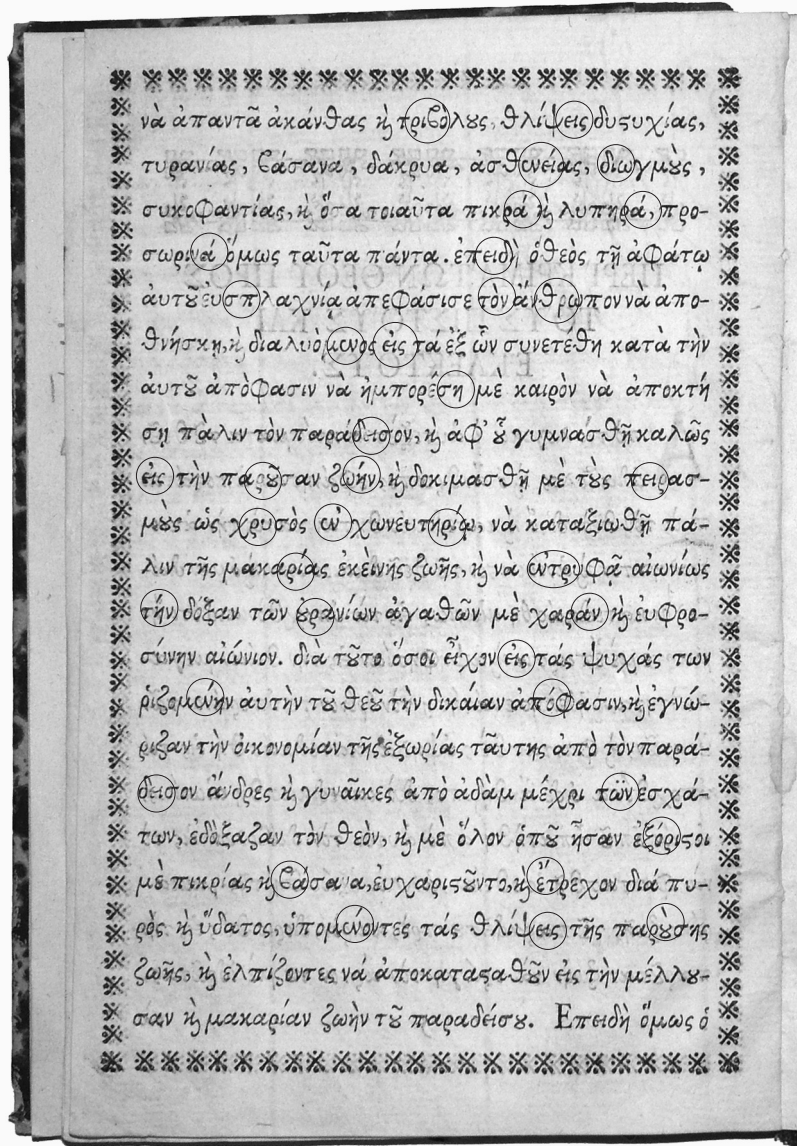 νὰ ἀπαντᾶ ἀκάνθας ϗ τριβόλους, θλίψεις δυστυχίας,
τυρανίας, βάσανα, δάκρυα, ἀσθενείας, διωγμοὺς,
συκοφαντίας, ϗ ὅσα τοιαῦτα πικρά ϗ λυπηρά, προ-
σωρινά ὅμως ταῦτα πάντα. ἐπειδὴ ὁ θεὸς τῇ ἀφάτῳ
ἀυτοῦ ἐυσπλαχνίᾳ ἀπεφάσισε τὸν ἄνθρωπον νὰ ἀπο-
θνήσκῃ, ϗ διαλυόμενος εἰς τά ἐξ ὧν συνετέθη κατὰ τὴν
ἀυτοῦ ἀπόφασιν νὰ ἠμπορέσῃ μὲ καιρὸν νὰ ἀποκτή
σῃ πὰλιν τὸν παράδεισον, ϗ ἀφ' οὗ γυμνασθῇ καλῶς
εἰς τὴν παροῦσαν ζωήν, ϗ δοκιμασθῇ μὲ τοὺς πειρασ-
μοὺς ὡς χρυσὸς ἐν χωνευτηρίῳ, νὰ καταξιωθῇ πά-
λιν τῆς μακαρίας ἐκείνης ζωῆς, ϗ νὰ ἐντρυφᾷ αἰωνίως
τὴν δόξαν τῶν οὐρανίων ἀγαθῶν μὲ χαράν ϗ ἐυφρο-
σύνην αἰώνιον. διὰ τοῦτο ὅσοι εἶχον εἰς τάς ψυχάς των
ῥιζομένην αυτὴν τοῦ θεοῦ τὴν δικαίαν ἀπόφασιν, ϗ ἐγνώ-
ριζαν τὴν οἰκονομίαν τῆς ἐξωρίας ταυτης ἀπὸ τὸν παρά-
δεισον ἄνδρες ϗ γυναῖκες ἀπὸ ἀδὰμ μέχρι τῶν ἐσχά-
των, ἐδὸξαζαν τὸν θεὸν, ϗ μὲ ὅλον ὁποῦ ἦσαν ἐξόριστοι
μὲ πικρίας ϗ βάσανα, ευχαριστοῦντο, ϗ ἔτρεχον διά πυ-
ρὸς ϗ ὕδατος, ὑπομένοντες τάς θλίψεις τῆς παρούσης
ζωῆς, ϗ ἐλπίζοντες νά ἀποκατασταθοῦν εἰς τὴν μέλλου-
σαν ϗ μακαρίαν ζωὴν τοῦ παραδείσου. Επειδὴ ὅμως ὁ